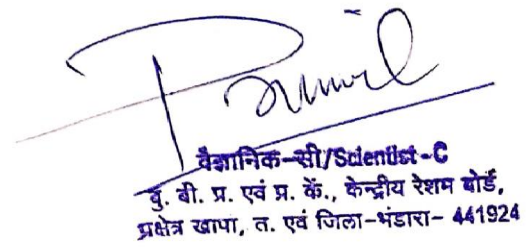 वैज्ञानिक-सी/Scientist-C
बु. बी. प्र. एवं प्र. कें., केन्द्रीय रेशम बोर्ड,
प्रक्षेत्र खापा, त. एवं जिला-भंडारा- 441924